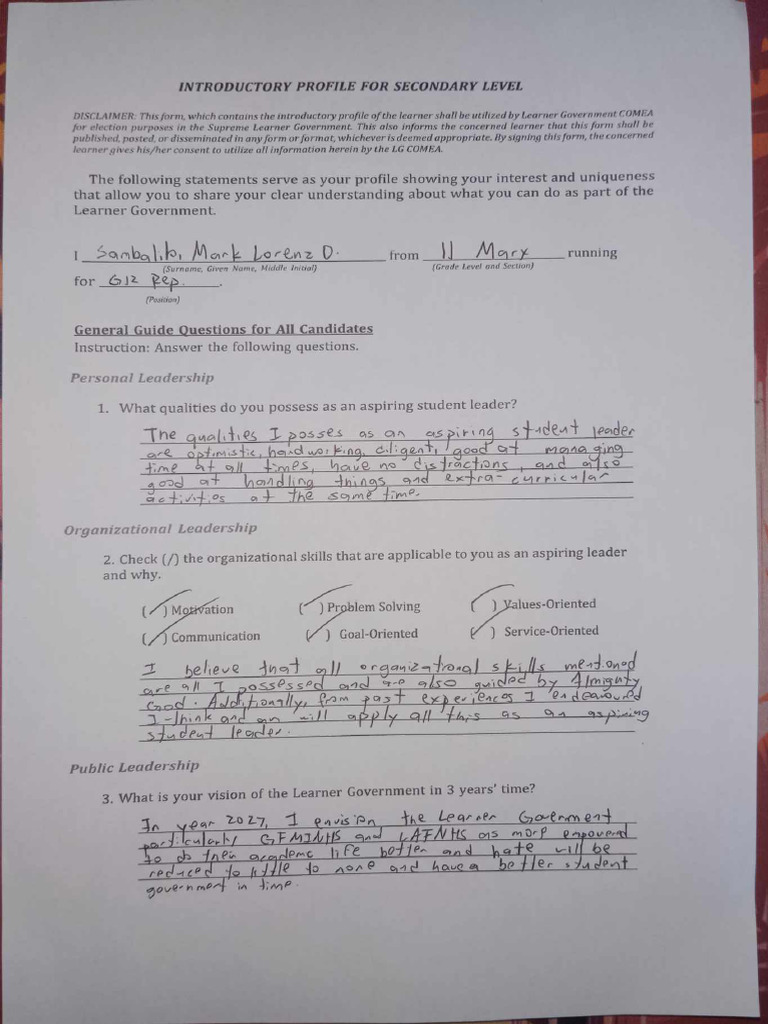 INTRODUCTORY PROFILE FOR SECONDARY LEVEL
DISCLAIMER: This form, which contains the introductory profile of the learner shall be utilized by Learner Government COMEA
for election purposes in the Supreme Learner Government. This also informs the concerned learner that this form shall be
published, posted, or disseminated in any form or format, whichever is deemed appropriate. By signing this form, the concerned
learner gives his/her consent to utilize all information herein by the LG COMEA.
The following statements serve as your profile showing your interest and uniqueness
that allow you to share your clear understanding about what you can do as part of the
Learner Government.
I Sambalib, Mark Lorenz D. from 11 Marx running
(Surname, Given Name, Middle Initial) (Grade Level and Section)
for G12 Rep.
(Position)
General Guide Questions for All Candidates
Instruction: Answer the following questions.
Personal Leadership
1. What qualities do you possess as an aspiring student leader?
The qualities I posses as an aspiring student leader
are optimistic, hardworking, diligent, good at managing
time at all times, have no distractions, and also
good at handling things and extra-curricular
activities at the same time.
Organizational Leadership
2. Check (/) the organizational skills that are applicable to you as an aspiring leader
and why.
(/) Motivation (/) Problem Solving (/) Values-Oriented
(/) Communication (/) Goal-Oriented (/) Service-Oriented
I believe that all organizational skills mentioned
are all I possessed and are also guided by Almighty
God. Additionally, from past experiences I endeavoured
I think and will apply all this as an aspiring
student leader.
Public Leadership
3. What is your vision of the Learner Government in 3 years' time?
In year 2027, I envision the Learner Government
particularly GFMINHS and LAFNHS as more empowered
to do their academic life better and hate will be
reduced to little to none and have a better student
government in time.